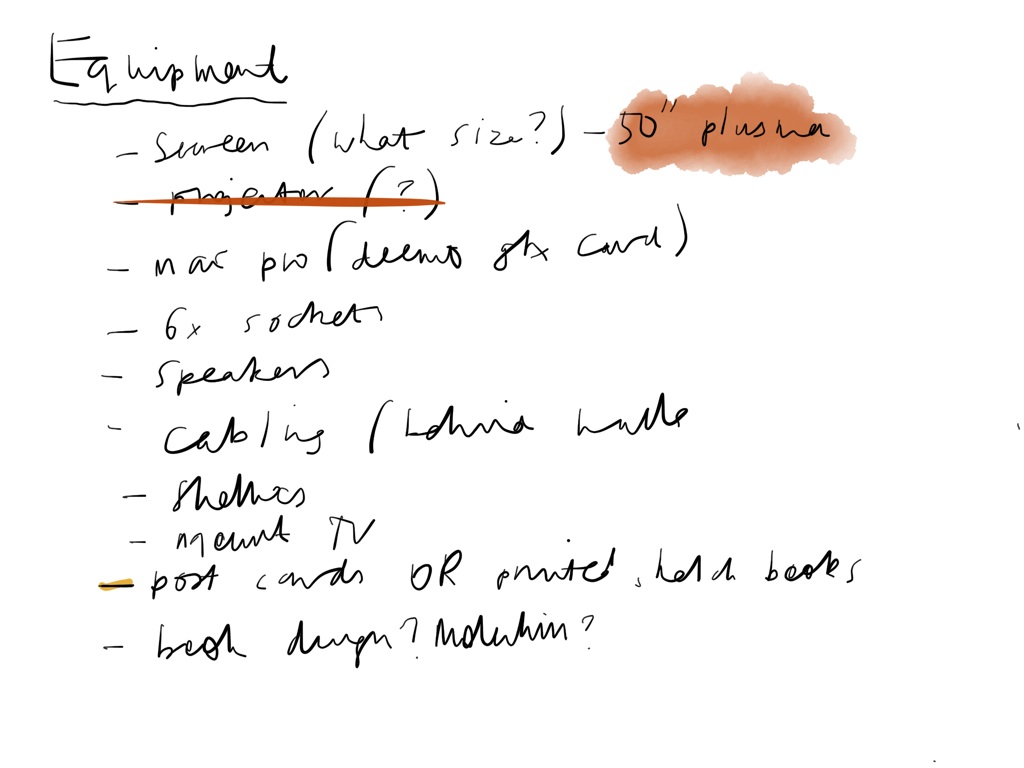 Equipment
- Screen (what size?) - 50" plusma
- projector (?)
- mac pro (deemo gfx card)
- 6x sockets
- speakers
- cabling (behind walls
- Shelves
- mount TV
- post cards OR printed, held books
- book design?